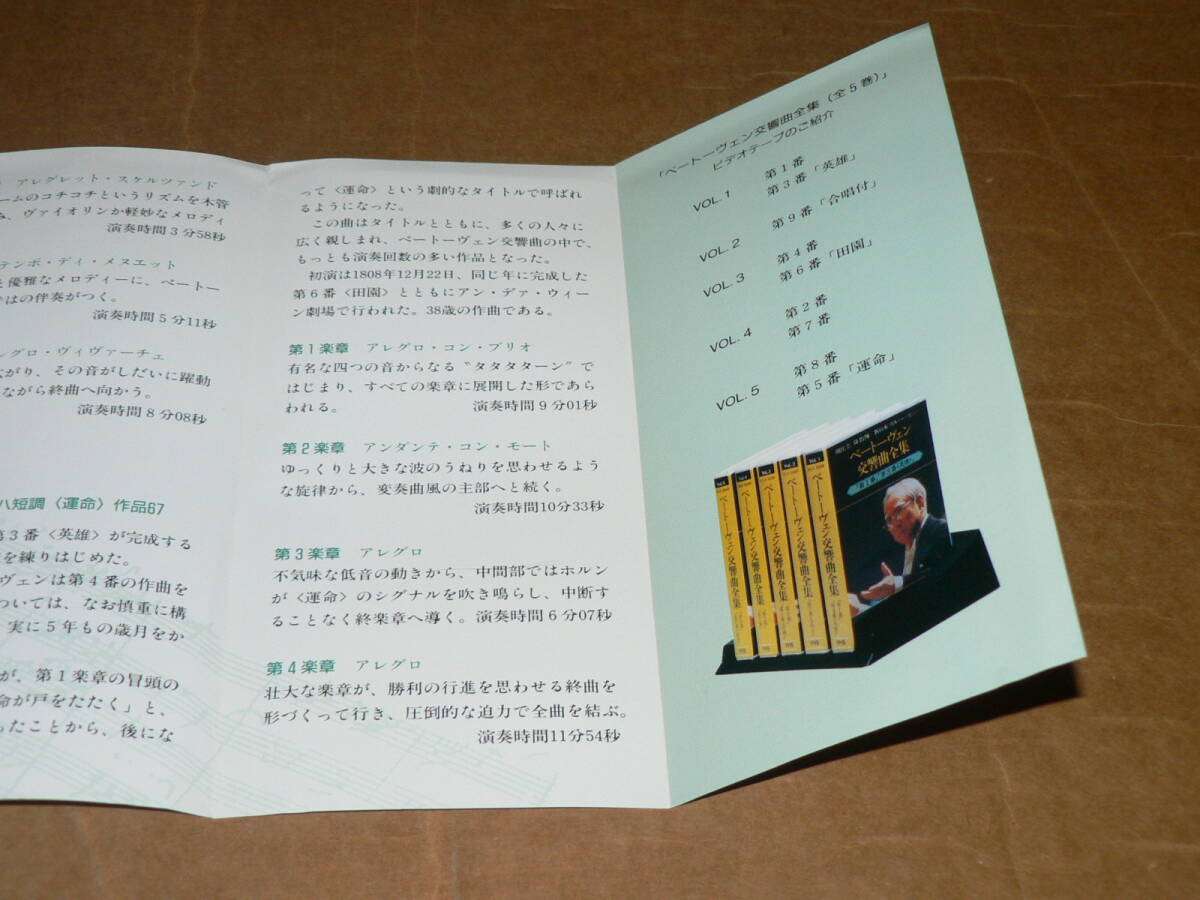 アレグレット・スケルツァンド
ームのコチコチというリズムを木管
み、ヴァイオリンが軽妙なメロディ
演奏時間3分58秒
テンポ・ディ・メヌエット
と優雅なメロディーに、ベートー
はの伴奏がつく。
演奏時間5分11秒
レグロ・ヴィヴァーチェ
ながり、その音がしだいに躍動
ながら終曲へ向かう。
演奏時間8分08秒
ハ短調〈運命〉作品67
第3番〈英雄〉が完成する
を練りはじめた。
ヴェンは第4番の作曲を
ついては、なお慎重に構
実に5年もの歳月をか
が、第1楽章の冒頭の
命が戸をたたく」と、
ったことから、後にな
って〈運命〉という劇的なタイトルで呼ばれ
るようになった。
この曲はタイトルとともに、多くの人々に
広く親しまれ、ベートーヴェン交響曲の中で、
もっとも演奏回数の多い作品となった。
初演は1808年12月22日、同じ年に完成した
第6番〈田園〉とともにアン・デァ・ウィー
ン劇場で行われた。38歳の作曲である。
第1楽章 アレグロ・コン・ブリオ
有名な四つの音からなる〝タタタターン〟で
はじまり、すべての楽章に展開した形であら
われる。 演奏時間9分01秒
第2楽章 アンダンテ・コン・モート
ゆっくりと大きな波のうねりを思わせるよう
な旋律から、変奏曲風の主部へと続く。
演奏時間10分33秒
第3楽章 アレグロ
不気味な低音の動きから、中間部ではホルン
が〈運命〉のシグナルを吹き鳴らし、中断す
ることなく終楽章へ導く。演奏時間6分07秒
第4楽章 アレグロ
壮大な楽章が、勝利の行進を思わせる終曲を
形づくって行き、圧倒的な迫力で全曲を結ぶ。
演奏時間11分54秒
「ベートーヴェン交響曲全集(全5巻)」
ビデオテープのご紹介
VOL.1 第1番
第3番「英雄」
VOL.2 第9番「合唱付」
VOL.3 第4番
第6番「田園」
VOL.4 第2番
第7番
VOL.5 第8番
第5番「運命」
ベートーヴェン
交響曲全集
ベートーヴェン交響曲全集
ベートーヴェン交響曲全集
ベートーヴェン交響曲全集
ベートーヴェン交響曲全集
ベートーヴェン交響曲全集